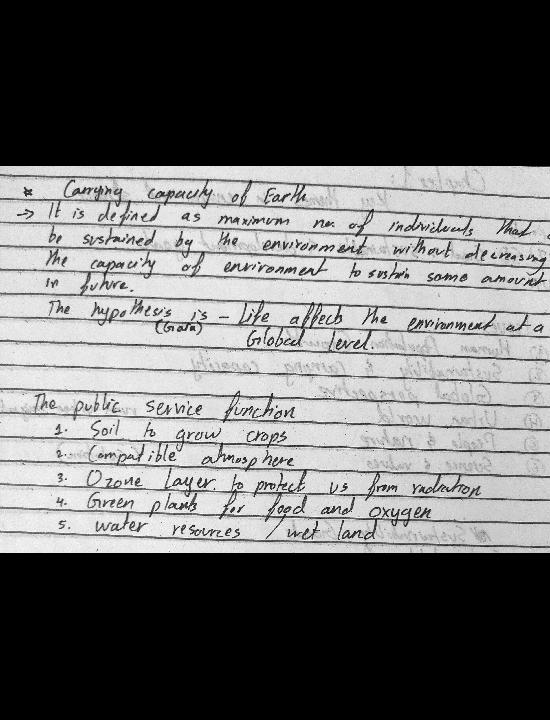 * Carrying capacity of Earth
→ It is defined as maximum no. of individuals that
be sustained by the environment without decreasing
the capacity of environment to sustain same amount
in future.
The hypothesis is - Life affects the environment at a
(Gaia) Global level.
The public service function
1. Soil to grow crops
2. Compatible atmosphere
3. Ozone Layer. to protect us from radiation
4. Green plants for food and oxygen
5. water resources / wet land